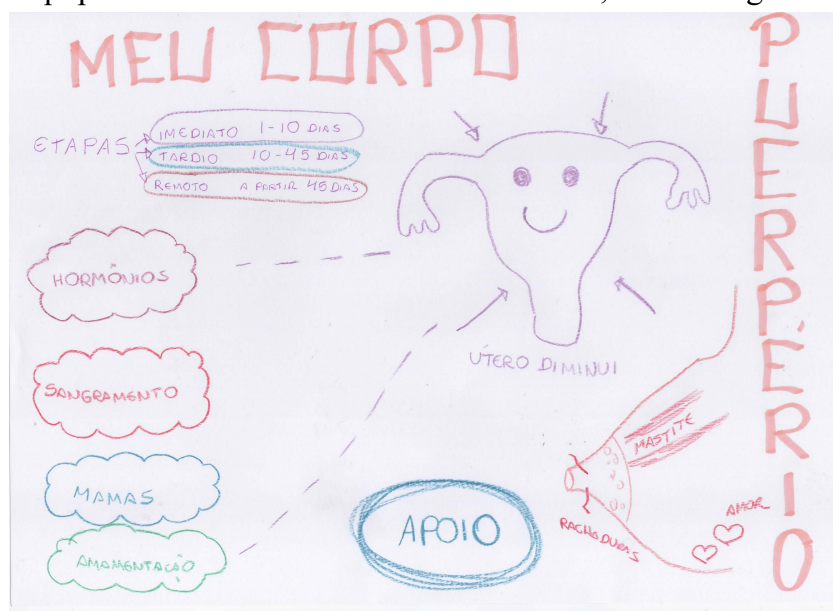 MEU CORPO
PUERPÉRIO
ETAPAS
IMEDIATO 1-10 DIAS
TARDIO 10-45 DIAS
REMOTO A PARTIR 45 DIAS
HORMÔNIOS
SANGRAMENTO
MAMAS
AMAMENTAÇÃO
ÚTERO DIMINUI
APOIO
MASTITE
RACHADURAS
AMOR